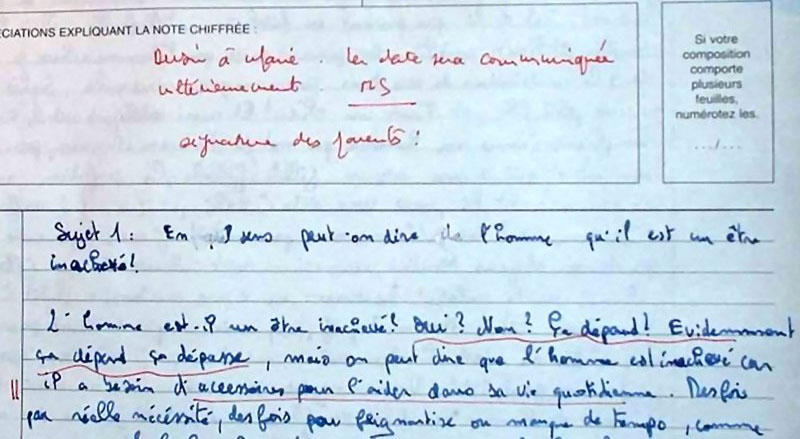 CIATIONS EXPLIQUANT LA NOTE CHIFFRÉE :
Devoir à refaire. La date sera communiquée
ultérieurement. NS
signature des parents !
Si votre
composition
comporte
plusieurs
feuilles,
numérotez les.
.../...
Sujet 1 : En sens peut-on dire de l'homme qu'il est un être
inachevé !
L'homme est-il un être inachevé ? Oui ? Non ? Ça dépend ! Evidemment
ça dépend ça dépasse, mais on peut dire que l'homme est inachevé car
il a besoin d'accessoires pour l'aider dans sa vie quotidienne. Des fois
par réelle nécéssité, des fois pour feignantise ou manque de temps, comme